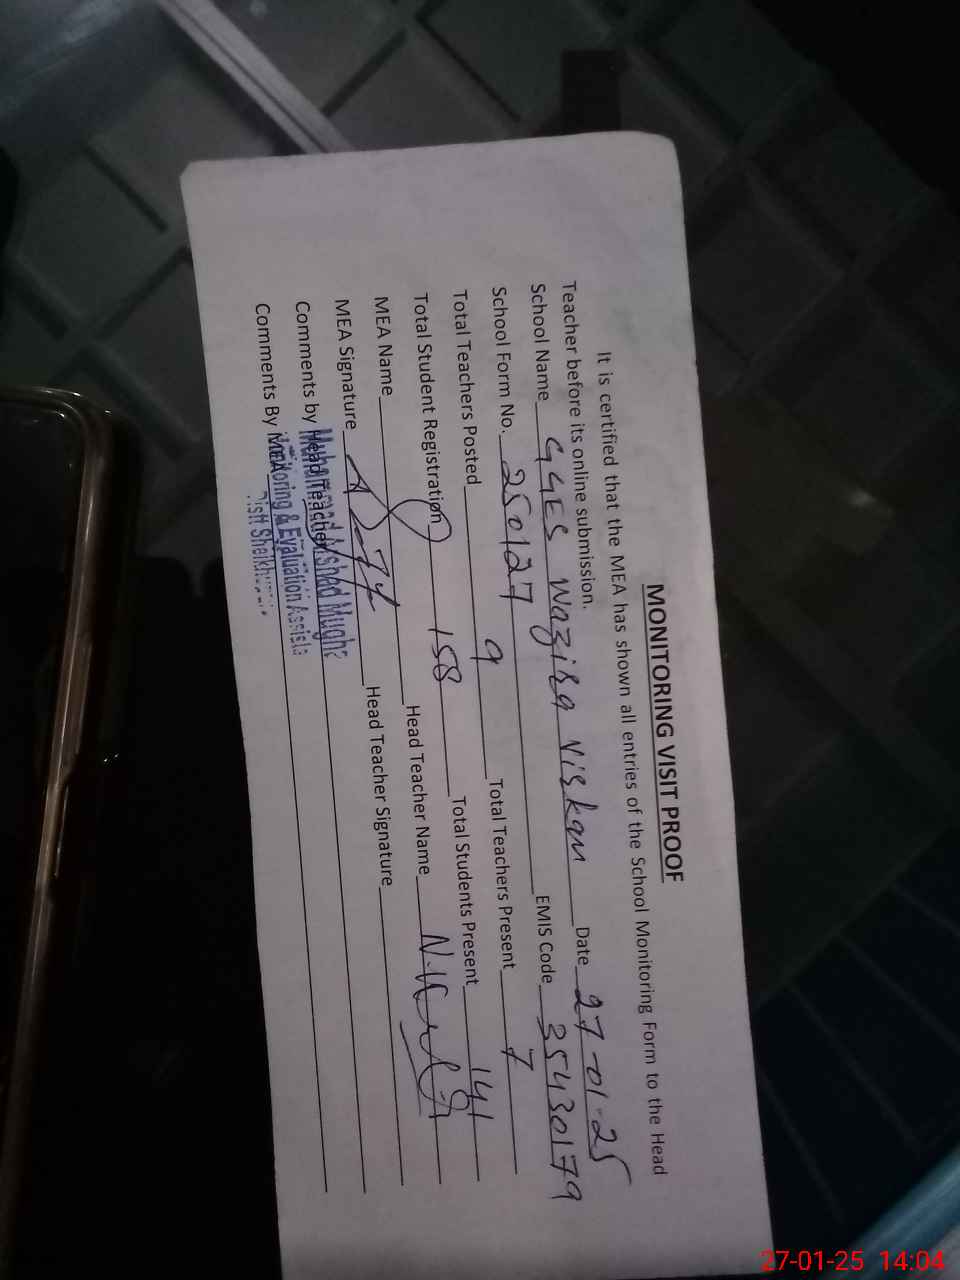 MONITORING VISIT PROOF
It is certified that the MEA has shown all entries of the School Monitoring Form to the Head
Teacher before its online submission.
School Name GGES Wazira Virkan Date 27-01-25
School Form No. 250127 EMIS Code 35430179
Total Teachers Posted 9 Total Teachers Present 7
Total Student Registration 158 Total Students Present 141
MEA Name Head Teacher Name
MEA Signature Head Teacher Signature
Comments by Head Teacher
Comments By MEA
Muhammad Arshad Mugha
Monitoring & Evaluation Assista
27-01-25 14:04